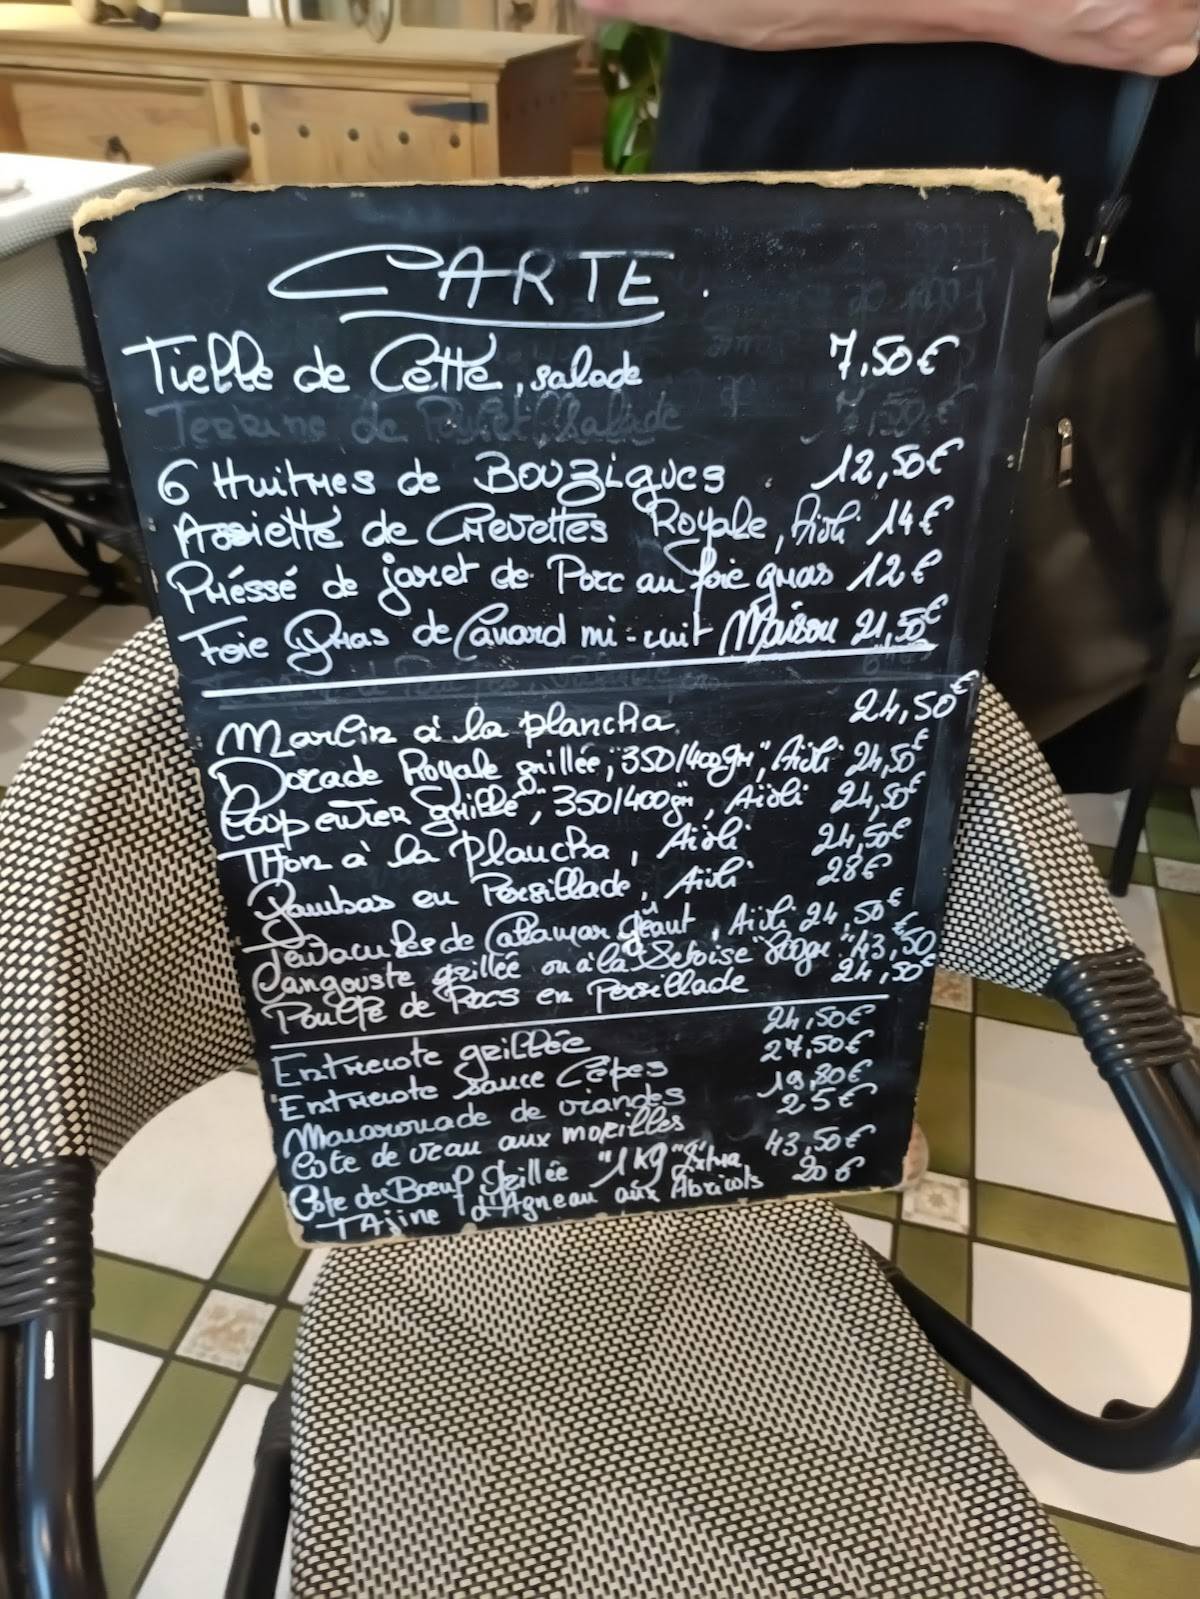 CARTE
Tielle de Cette, salade 7,50€
Terrine de Salade
6 Huitres de Bouzigues 12,50€
Assiette de Crevettes Royale, Aïoli 14€
Préssé de jaret de Porc au foie gras 12€
Foie Gras de Canard mi-cuit Maison 21,50€
Marlin à la plancha 24,50€
Dorade Royale grillée, "350/400gr", Aïoli 24,50€
Loup entier grillé, "350/400gr", Aïoli 24,50€
Thon à la Plancha, Aïoli 24,50€
Gambas en Persillade, Aïoli 28€
Tentacules de Calamar géant, Aïoli 24,50€
Langouste grillée ou à la Sétoise 43,50
Poulpe de Rocs en Persillade 24,50€
Entrecote grillée 24,50€
Entrecote sauce Cèpes 27,50€
Macaronade de viandes 19,80€
Cote de veau aux morilles 25€
Cote de Boeuf Grillée "1 Kg" Extra 43,50€
TAjine d'Agneau aux Abricots 20€